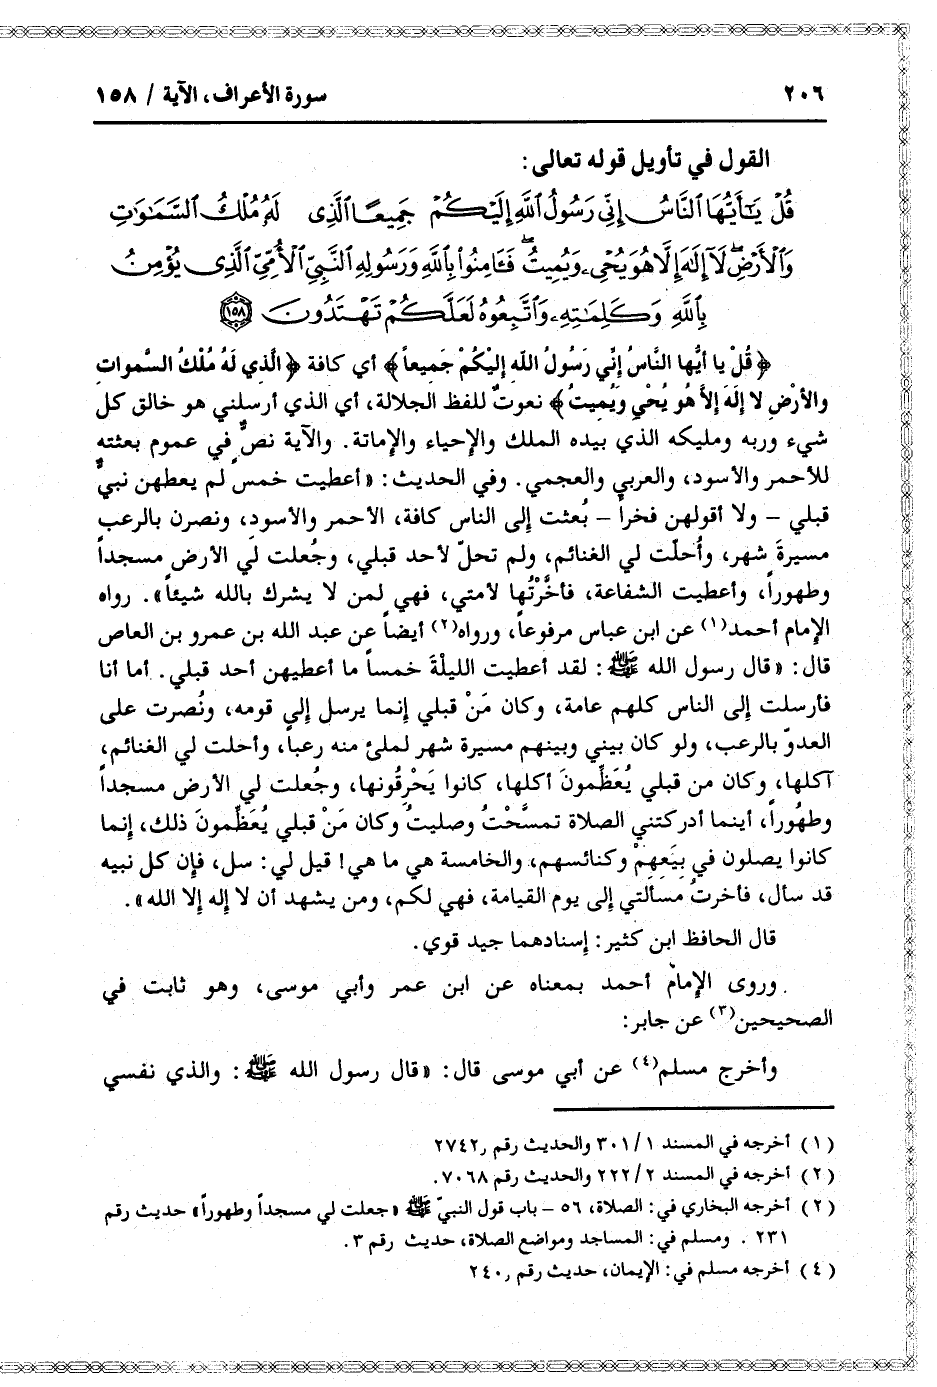 ٢٠٦ سورة الأعراف، الآية / ١٥٨
القول في تأويل قوله تعالى:
قُلْ يَٰٓأَيُّهَا ٱلنَّاسُ إِنِّي رَسُولُ ٱللَّهِ إِلَيْكُمْ جَمِيعًا ٱلَّذِى لَهُۥ مُلْكُ ٱلسَّمَٰوَٰتِ
وَٱلْأَرْضِۖ لَآ إِلَٰهَ إِلَّا هُوَ يُحْىِۦ وَيُمِيتُۖ فَـَٔامِنُوا۟ بِٱللَّهِ وَرَسُولِهِ ٱلنَّبِىِّ ٱلْأُمِّىِّ ٱلَّذِى يُؤْمِنُ
بِٱللَّهِ وَكَلِمَٰتِهِۦ وَٱتَّبِعُوهُ لَعَلَّكُمْ تَهْتَدُونَ ١٥٨
﴿قُلْ يا أيُّها النَّاسُ إنِّي رَسُولُ اللّهِ إلَيْكُمْ جَمِيعاً﴾ أي كافة ﴿الَّذي لَهُ مُلْكُ السَّموات
والأرْضِ لا إلَهَ إلاَّ هُو يُحْي ويُميتُ﴾ نعوتٌ للفظ الجلالة، أي الذي أرسلني هو خالق كل
شيء وربه ومليكه الذي بيده الملك والإحياء والإماتة. والآية نصٌّ في عموم بعثته
للأحمر والأسود، والعربي والعجمي. وفي الحديث: «أعطيت خمس لم يعطهن نبيٌّ
قبلي – ولا أقولهن فخراً – بُعثت إلى الناس كافة، الأحمر والأسود، ونصرن بالرعب
مسيرةَ شهر، وأُحلّت لي الغنائم، ولم تحلّ لأحد قبلي، وجُعلت لي الأرض مسجداً
وطهوراً، وأعطيت الشفاعة، فأخَّرْتُها لأمتي، فهي لمن لا يشرك بالله شيئاً». رواه
الإمام أحمد(١) عن ابن عباس مرفوعاً، ورواه(٢) أيضاً عن عبد الله بن عمرو بن العاص
قال: «قال رسول الله ﷺ: لقد أعطيت الليلْةَ خمساً ما أعطيهن أحد قبلي. أما أنا
فأرسلت إلى الناس كلهم عامة، وكان مَنْ قبلي إنما يرسل إلي قومه، ونُصرت على
العدوّ بالرعب، ولو كان بيني وبينهم مسيرة شهر لملئ منه رعباً، وأحلت لي الغنائم،
آكلها، وكان من قبلي يُعَظِّمونَ أكلها، كانوا يَحْرِقُونها، وجُعلت لي الأرض مسجداً
وطهُوراً، أينما أدركتني الصلاة تمسَّحْتُ وصليتُ وكان مَنْ قبلي يُعَظِّمونَ ذلك، إنما
كانوا يصلون في بِيَعِهِمْ وكنائسهم، والخامسة هي ما هي! قيل لي: سل، فإن كل نبيه
قد سأل، فأخرتُ مسألتي إلى يوم القيامة، فهي لكم، ومن يشهد أن لا إله إلا الله».
قال الحافظ ابن كثير: إسنادهما جيد قوي.
وروى الإمام أحمد بمعناه عن ابن عمر وأبي موسى، وهو ثابت في
الصحيحين(٣) عن جابر:
وأخرج مسلم(٤) عن أبي موسى قال: «قال رسول الله ﷺ: والذي نفسي
(١) أخرجه في المسند ٣٠١/١ والحديث رقم ٢٧٤٢
(٢) أخرجه في المسند ٢٢٢/٢ والحديث رقم ٧٠٦٨.
(٢) أخرجه البخاري في: الصلاة، ٥٦ – باب قول النبيّ ﷺ «جعلت لي مسجداً وطهوراً» حديث رقم
٢٣١ . ومسلم في: المساجد ومواضع الصلاة، حديث رقم ٣.
(٤) أخرجه مسلم في: الإيمان، حديث رقم ٢٤٠